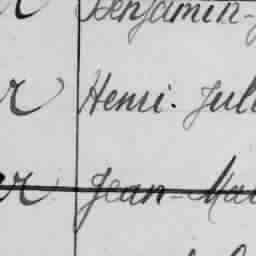 r Benjamin-
r Henri. Jul
er Jean-Ma